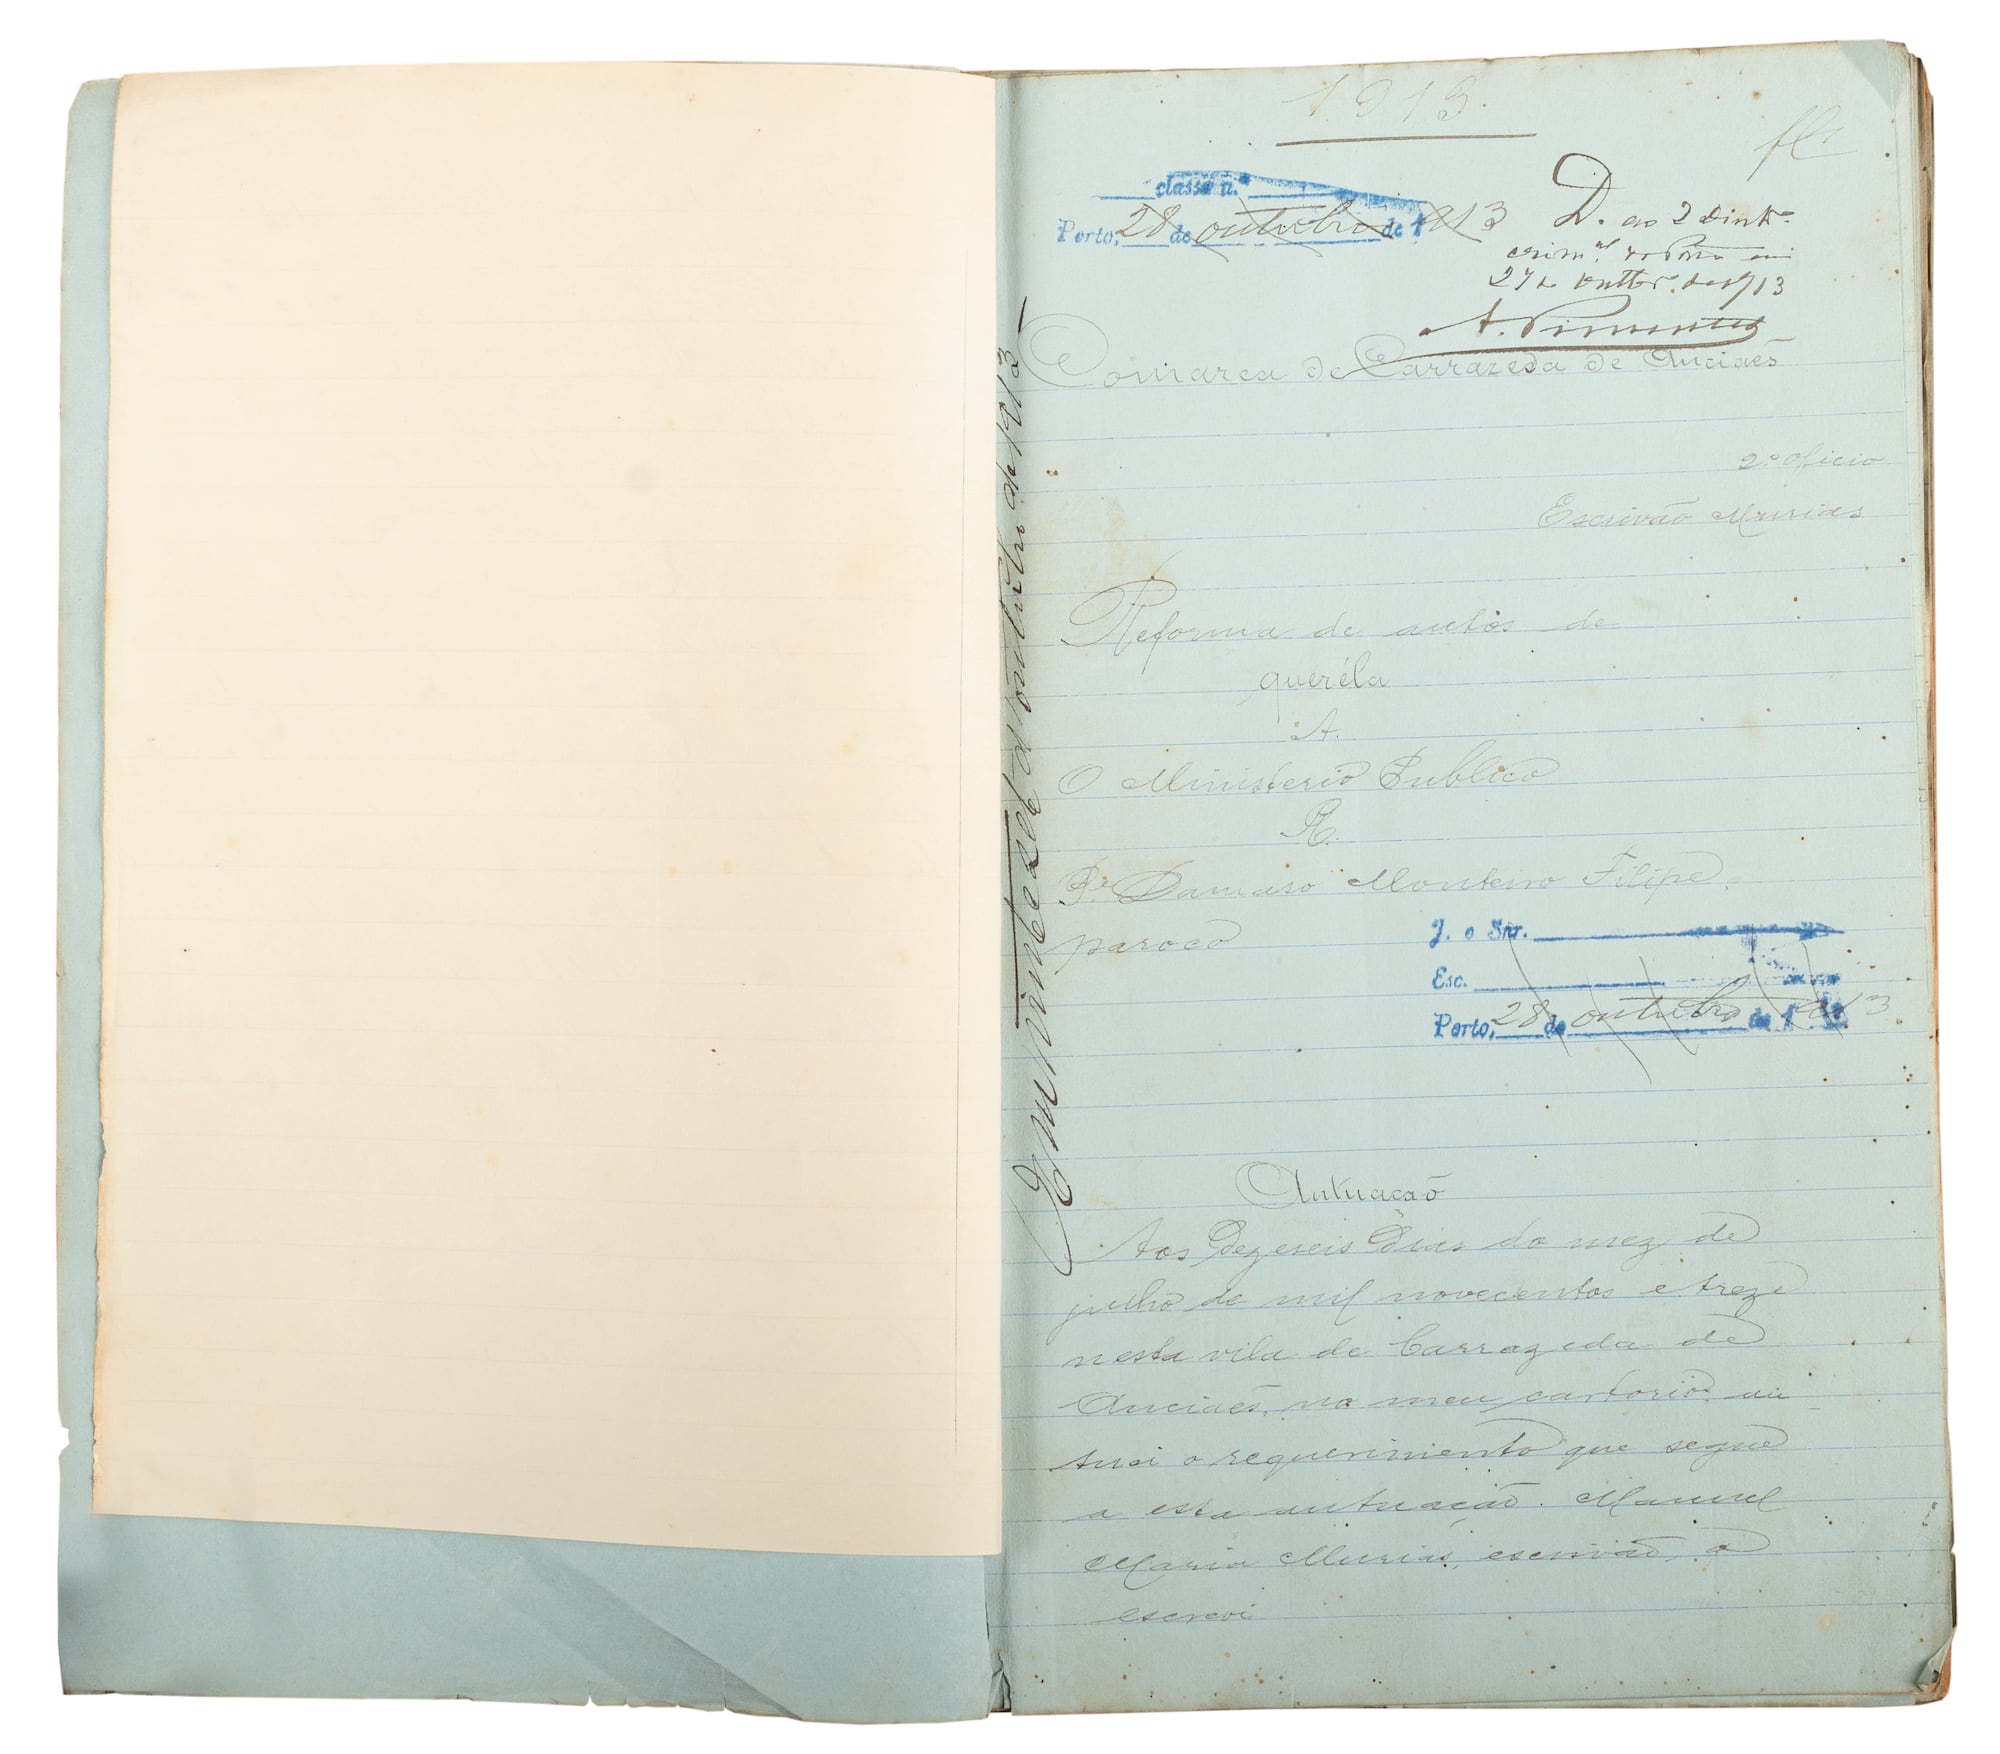 1913
fl 1
classe n.
Porto, 28 de outubro de 1913
D. ao 2
27 de outbr.o de 1913
A. Pimentel
Comarca de Carrazeda de Anciães
2.º oficio
Escrivão Murias
Reforma de autos de
queréla
A.
O Ministerio Publico
R.
P.e Damaso Monteiro Filipe,
paroco
J. o Snr.
Esc.
Porto, 28 de outubro de 1913
Autuacão
Aos Dezeseis Dias do mez de
julho de mil novecentos e treze
nesta vila de Carrazeda de
Anciães, no meu cartorio, au-
tuei o requerimento que segue
a esta autuação. Manuel
Maria Murias, escrivão, o
escrevi
Em vinte e sete d'outubro de 1913